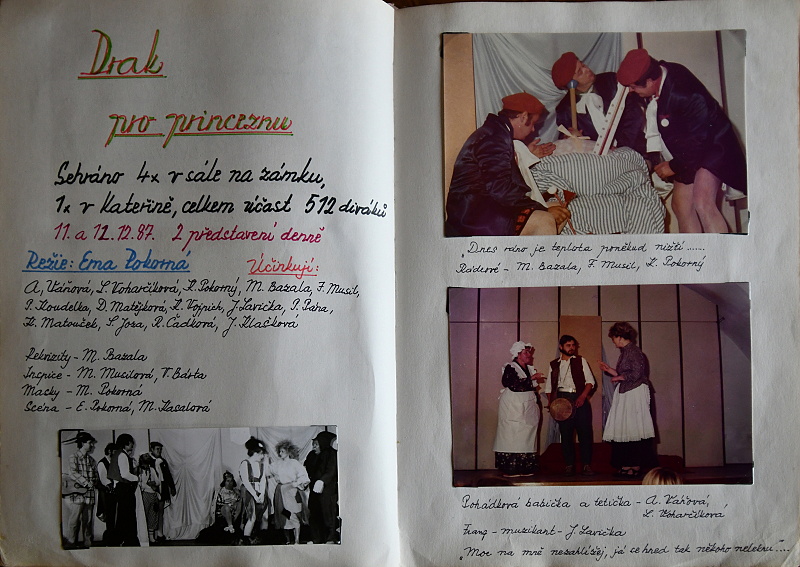 Drak
pro princeznu
Sehráno 4x v sále na zámku,
1x v Kateřině, celkem účast 512 diváků
11. a 12.12.87. 2 představení denně
Režie: Ema Pokorná Účinkují:
A. Váňová, L. Voharčíková, K. Pokorný, M. Bazala, F. Musil,
P. Koudelka, D. Matějková, K. Vojnich, J. Lavička, P. Pána,
K. Matouček, S. Joza, R. Čadková, J. Klašková
Rekvizity - M. Bazala
Inspice - M. Musilová, V. Bárta
Masky - M. Pokorná
Scéna - E. Pokorná, M. Kasalová
"Dnes ráno je teplota poněkud nižší ......
Rádcové - M. Bazala, F. Musil, K. Pokorný
Pohádková babička a tetička - A. Váňová,
L. Voharčíková
Franc - muzikant - J. Lavička
"Moc na mně nezahlížej, já se hned tak někoho neleknu"....